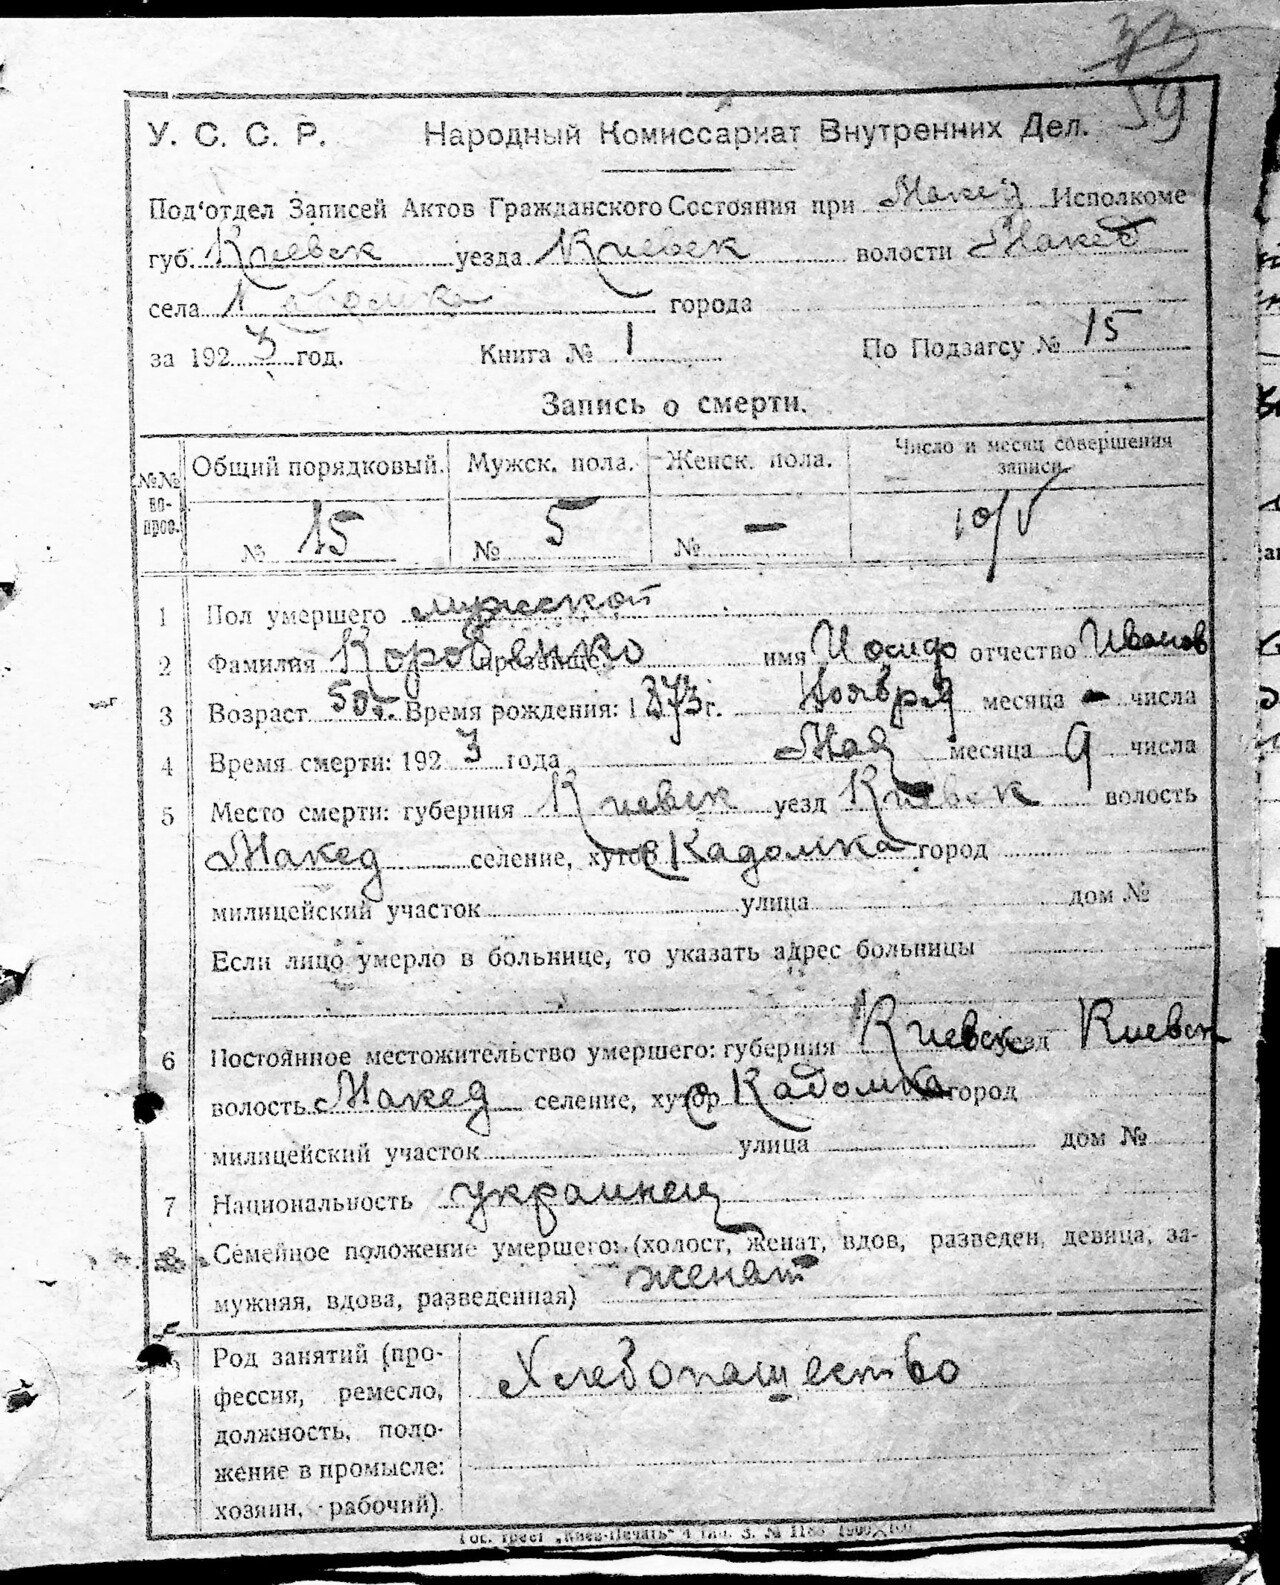 33
59
У. С. С. Р. Народный Комиссариат Внутренних Дел.
Под'отдел Записей Актов Гражданского Состояния при Макед Исполкоме
губ. Киевск уезда Киевск волости Макед
села города
за 1923 год. Книга № 1 По Подзагсу № 15
Запись о смерти.
№№ во- прос. Общий порядковый. Мужск. пола. Женск. пола. Число и месяц совершения записи.
№ 15 № 5 № — 10/V
1 Пол умершего мужской
2 Фамилия прозвище имя Иосиф отчество Иванов
3 Возраст 50 Время рождения: 1873 г. Ноября месяца - числа
4 Время смерти: 1923 года Мая месяца 9 числа
5 Место смерти: губерния Киевск уезд Киевск волость
Макед селение, хутор Кадомка город
милицейский участок улица дом №
Если лицо умерло в больнице, то указать адрес больницы
6 Постоянное местожительство умершего: губерния Киевск уезд Киевск
волость Макед селение, хутор Кадомка город
милицейский участок улица дом №
7 Национальность украинец
8 Семейное положение умершего: (холост, женат, вдов, разведен, девица, за-
мужняя, вдова, разведенная) женат
Род занятий (про- Хлебопашество
фессия, ремесло,
должность, поло-
жение в промысле:
хозяин, рабочий).
Гос. трест „Киев-Печать"